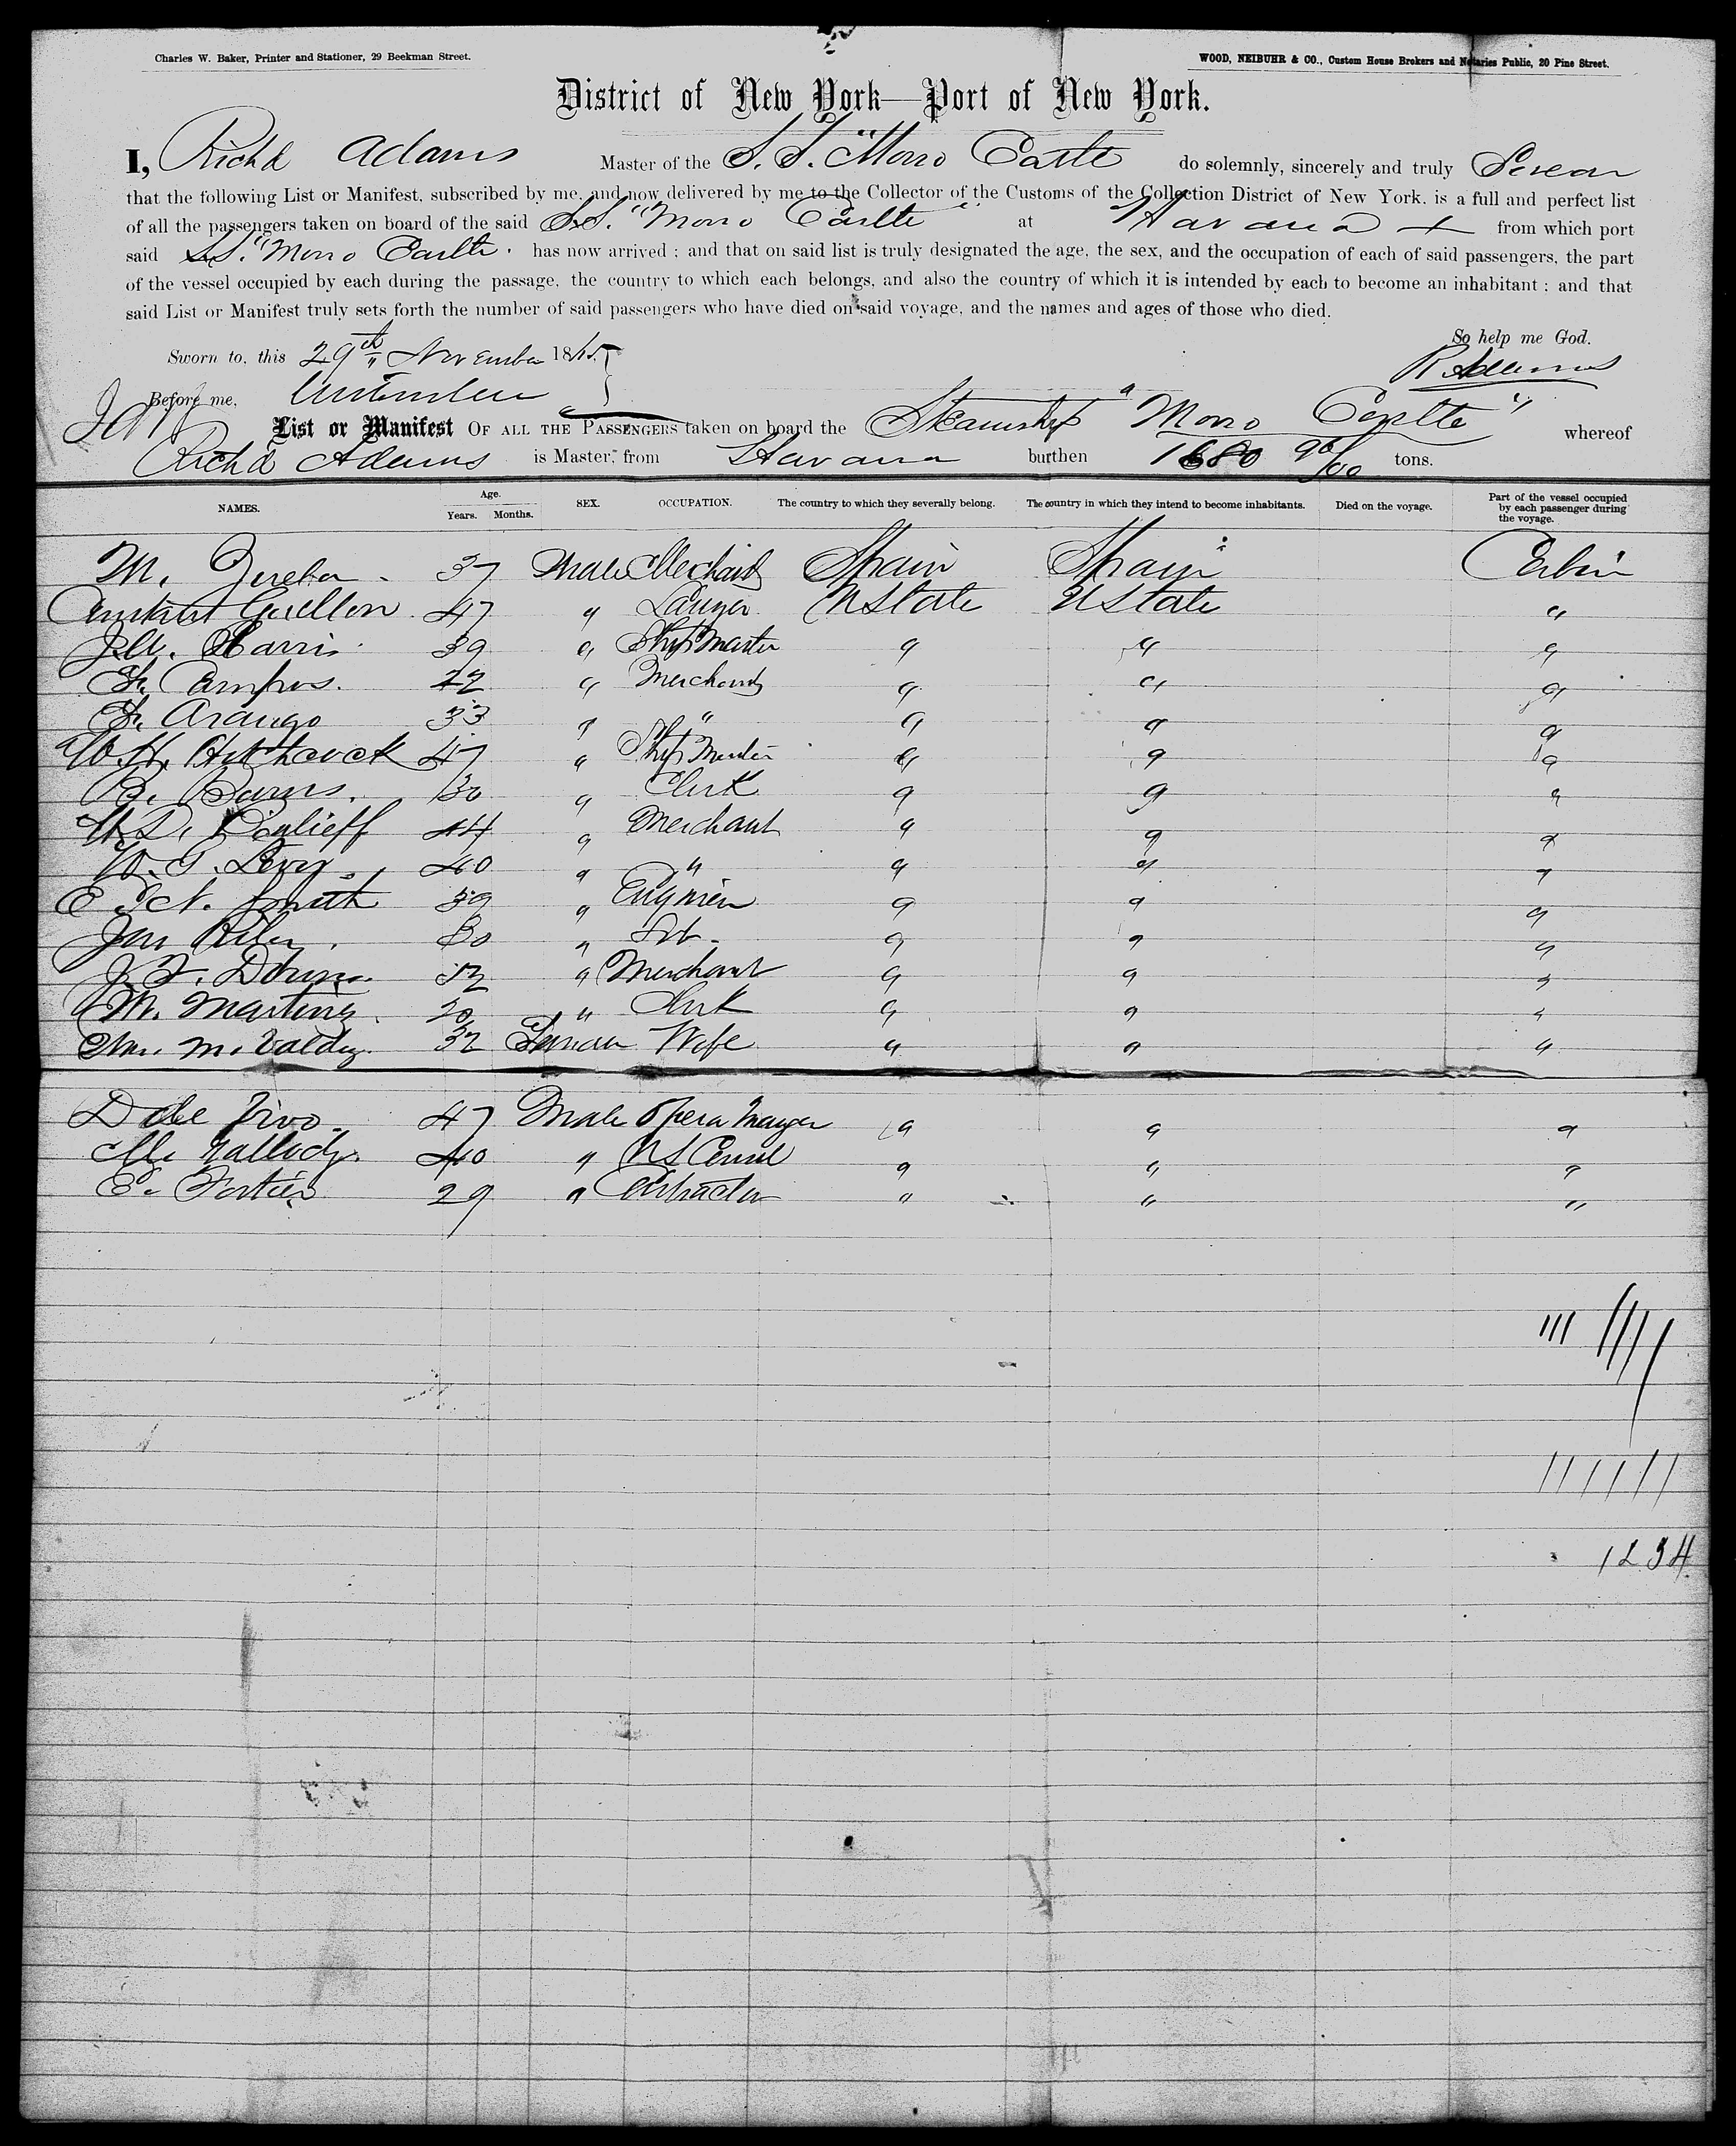 Charles W. Baker, Printer and Stationer, 29 Beekman Street.
WOOD, NEIBUHR & CO., Custom House Brokers and Notaries Public, 20 Pine Street.
District of New York—Port of New York.
I, Richd Adams Master of the S. S. "Morro Castle do solemnly, sincerely and truly Swear
that the following List or Manifest, subscribed by me, and now delivered by me to the Collector of the Customs of the Collection District of New York, is a full and perfect list
of all the passengers taken on board of the said S.S. "Morro Castle" at Havana from which port
said S.S. "Morro Castle. has now arrived; and that on said list is truly designated the age, the sex, and the occupation of each of said passengers, the part
of the vessel occupied by each during the passage, the country to which each belongs, and also the country of which it is intended by each to become an inhabitant; and that
said List or Manifest truly sets forth the number of said passengers who have died on said voyage, and the names and ages of those who died.
So help me God.
Sworn to, this 29th November 1865
R Adams
Before me,
List or Manifest OF ALL THE PASSENGERS taken on board the Steamship "Morro Castle" whereof
Richd Adams is Master, from Havana burthen 1680 96/100 tons.
NAMES. Age. Years. Months. SEX. OCCUPATION. The country to which they severally belong. The country in which they intend to become inhabitants. Died on the voyage. Part of the vessel occupied by each passenger during the voyage.
M. 37 Male Merchant Spain Spain Cabin
47 " Lawyer U State U State "
Harris 39 " Ship Master " " "
Campos. 22 " Merchant " " "
Arango 33 " " " " "
W. H. 47 " Ship Master " " "
B. Burns. 30 " Clerk " " "
44 " Merchant " " "
W. G. 40 " " " " "
Smith 39 " " " "
Riley. 30 " " " "
J. F. 52 " Merchant " " "
M. Martinez. 20 " Clerk " " "
M. Valdez. 32 Female Wife " " "
47 Male Opera Manager " " "
40 " " " "
E. Fortier 29 " Contractor " " "
1234